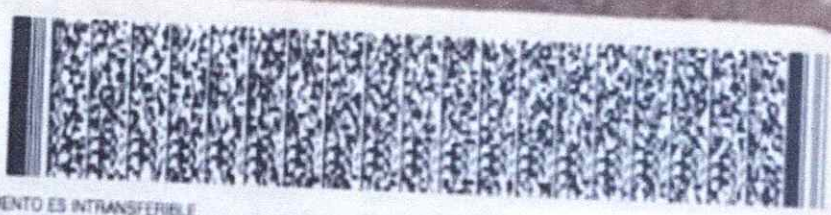 MENTO ES INTRANSFERIBLE